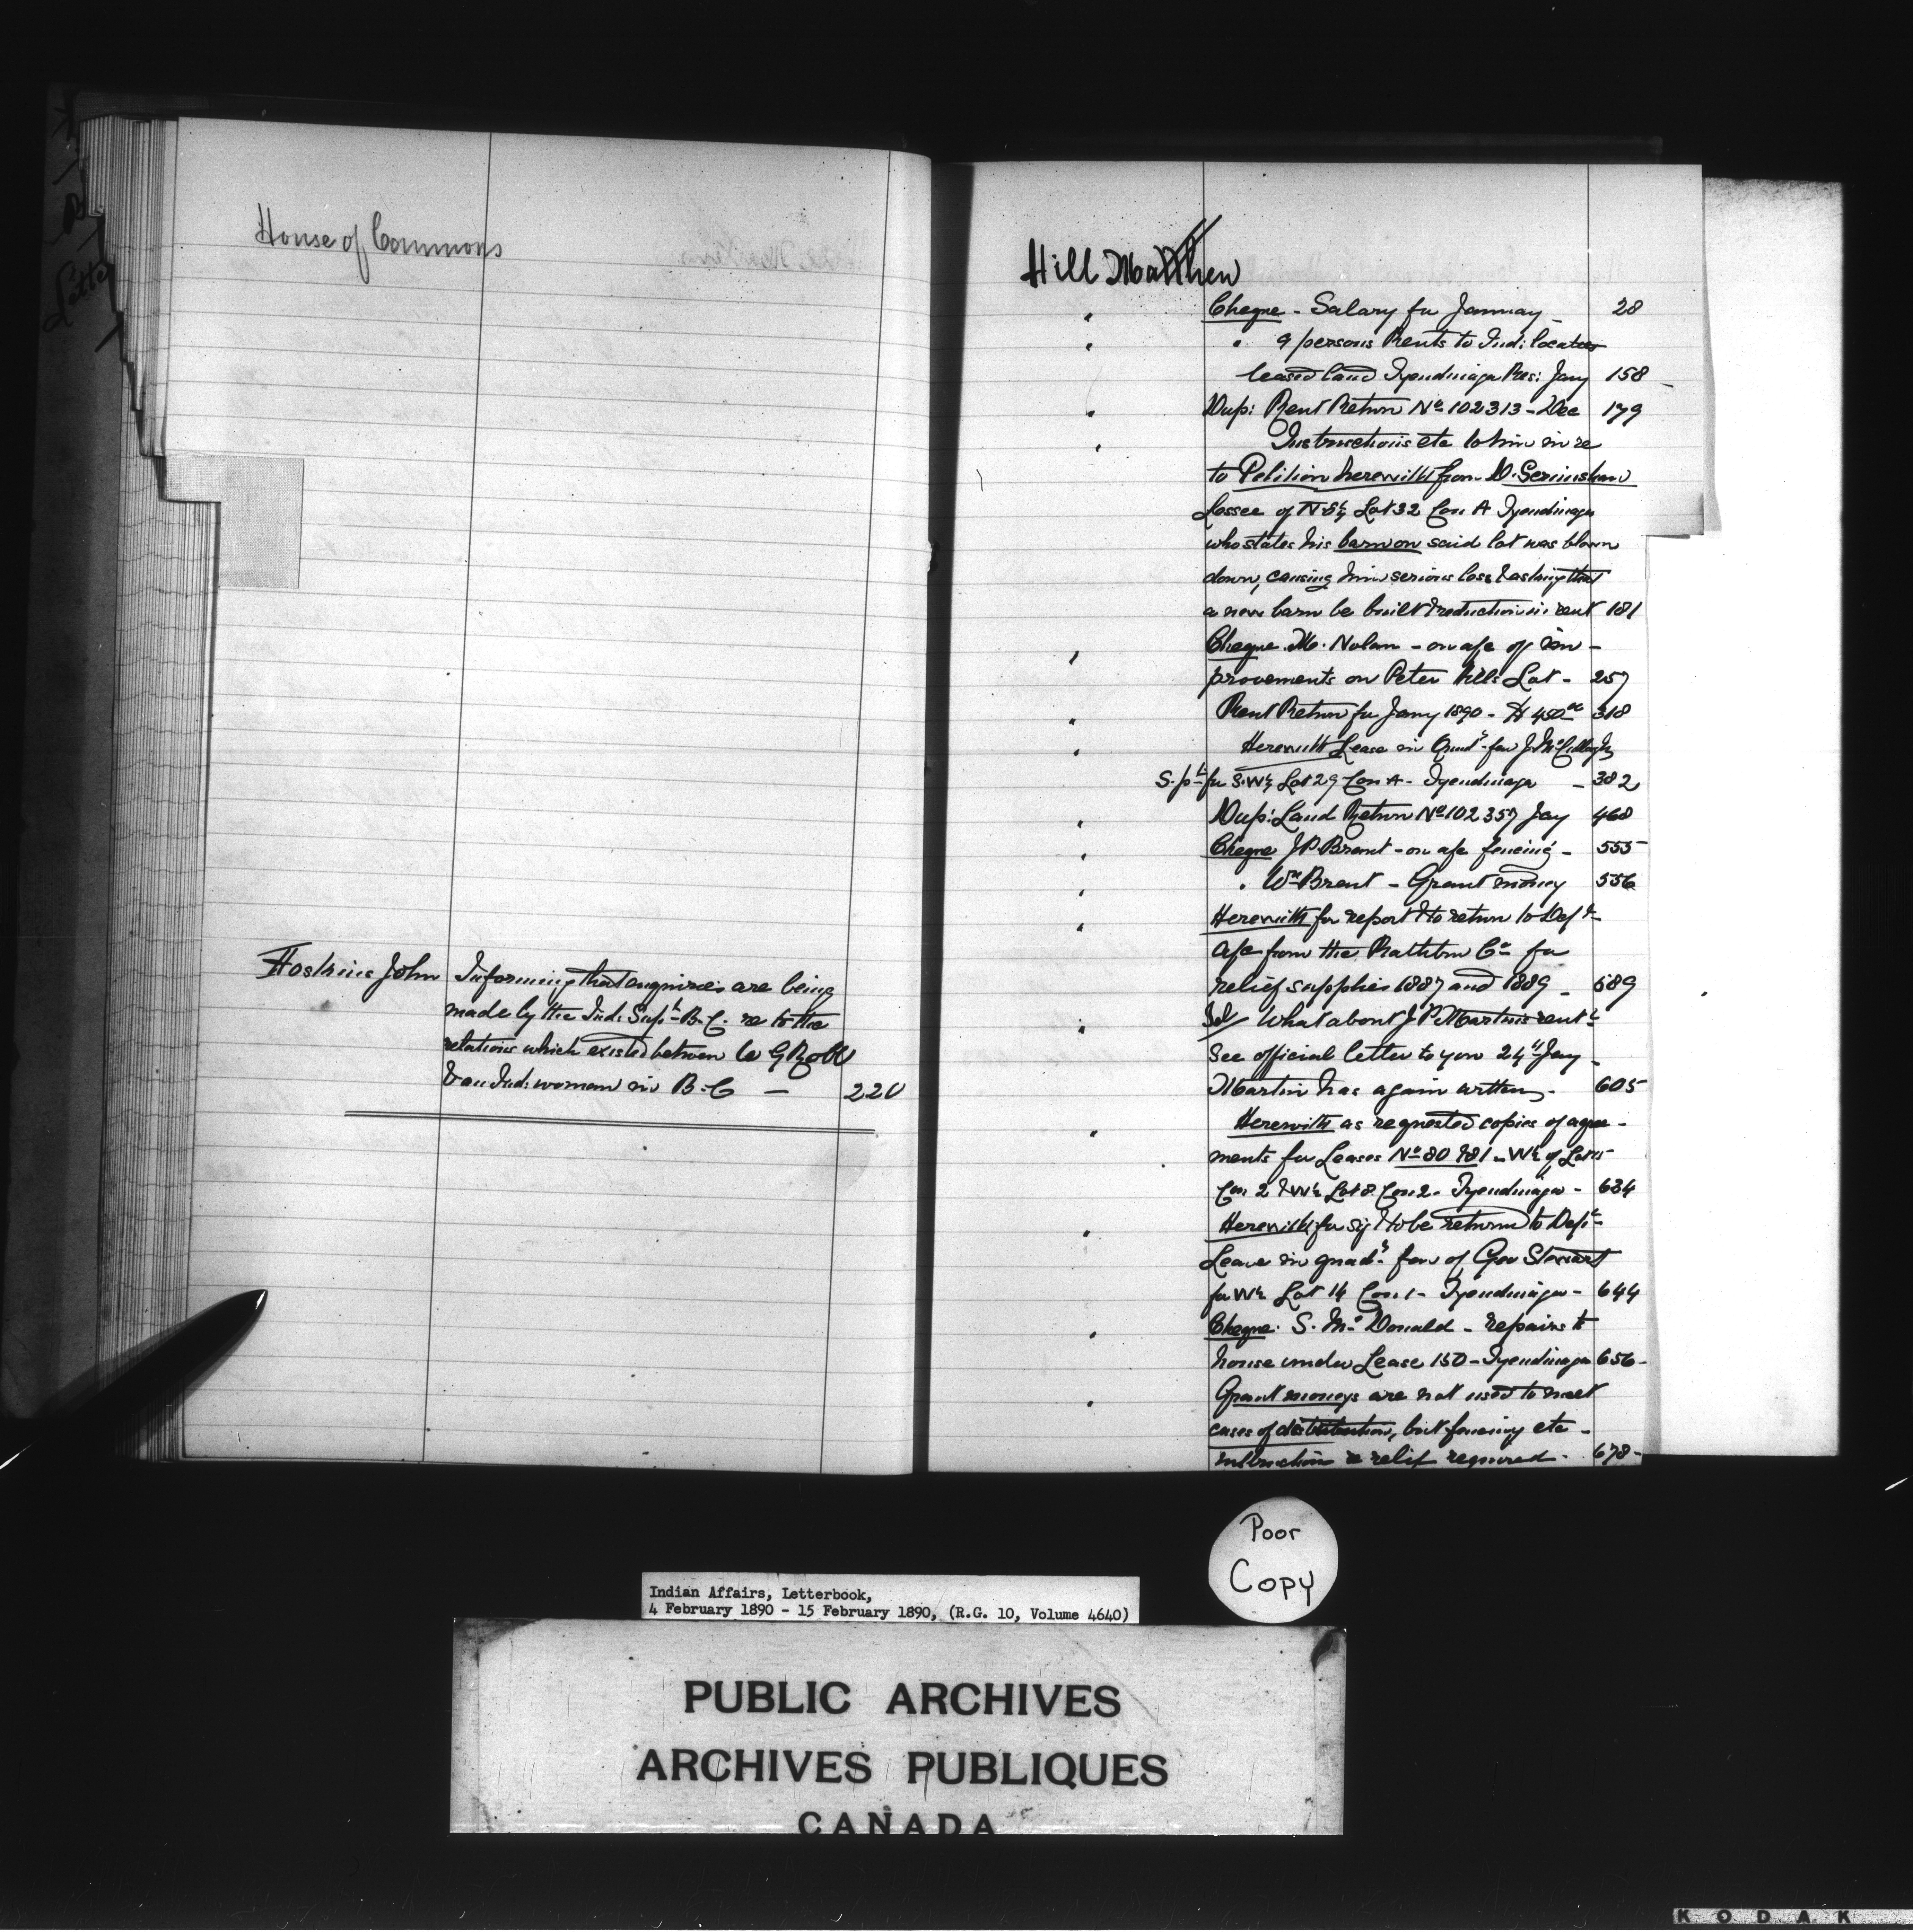 House of Commons
Hoskins John Informing that enquiries are being
made by the Ind. Supt B.C. re to the
relations which existed between W G Robb
& an Ind. woman in B.C — 220
Hill Matthew
Cheque - Salary for January - 28
" 9 persons Rents to Ind: locatees
leased land Tyendinaga Res: Jany 158
Dup: Rent Return No 102313 - Dec 179
Instructions etc to him in re
to Petition herewith from D.
Lessee of N ½ Lot 32 Con A Tyendinaga
who states his barn on said lot was blown
down, causing him serious loss & asking that
a new barn be built & reduction in rent 181
Cheque M. Nolan - on a/c of im-
provements on Peter Hills Lot - 257
Rent Return for Jany 1890 - $450 318
Herewith Lease in Quad. fav J.
S. pt for S.W ¼ Lot 29 Con A - Tyendinaga - 382
Dup: Land Return No 102357 Jay 468
Cheque J P Brant - on a/c fencing - 555
" Wm Brant - Grant money 556
Herewith for report & to return to Dept
a/c from the Rathbun Co for
relief supplies 1887 and 1889 - 589
What about J P Martins rent
See official letter to you 24th Jany -
Martin has again written - 605
Herewith as requested copies of agree-
ments for Leases No 80 & 81 - W ½ of Lot 15
Con 2 & W ½ Lot 8 Con 2 - Tyendinaga - 634
Herewith for sig & to be returned to Dept
Lease in quad. fav of Geo Stewart
for W ½ Lot 14 Con 1 - Tyendinaga - 644
Cheque: S. McDonald - repairs to
house under Lease 150 - Tyendinaga 656 -
Grant moneys are not used to meet
cases of destitution, but fencing etc -
instructions re relief required - 678 -
Poor
Copy
Indian Affairs, Letterbook,
4 February 1890 - 15 February 1890, (R.G. 10, Volume 4640)
PUBLIC ARCHIVES
ARCHIVES PUBLIQUES
CANADA
KODAK